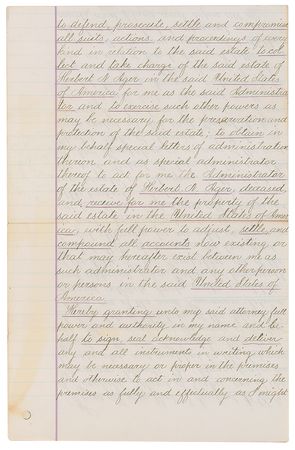 to defend, prosecute, settle and compromise
all suits, actions, and proceedings of every
kind in relation to the said estate to col
lect and take charge of the said estate of
Herbert N. Ager in the said United States
of America for me as the said Administra
tor and to exercise such other powers as
may be necessary for the preservation and
protection of the said estate; to obtain in
my behalf special letters of administration
thereon and as special administrator
thereof to act for me the Administrator
of the estate of Herbert N. Ager, deceased,
and receive for me the property of the
said estate in the United States of Amer
ica, with full power to adjust, settle, and
compound all accounts now existing, or
that may hereafter exist between me as
such administrator and any other person
or persons in the said United States of
America.
Hereby granting unto my said attorney full
power and authority in my name and be
half to sign, seal acknowledge and deliver
any and all instruments in writing which
may be necessary or proper in the premises
and otherwise to act in and concerning the
premises as fully and effectually as I might